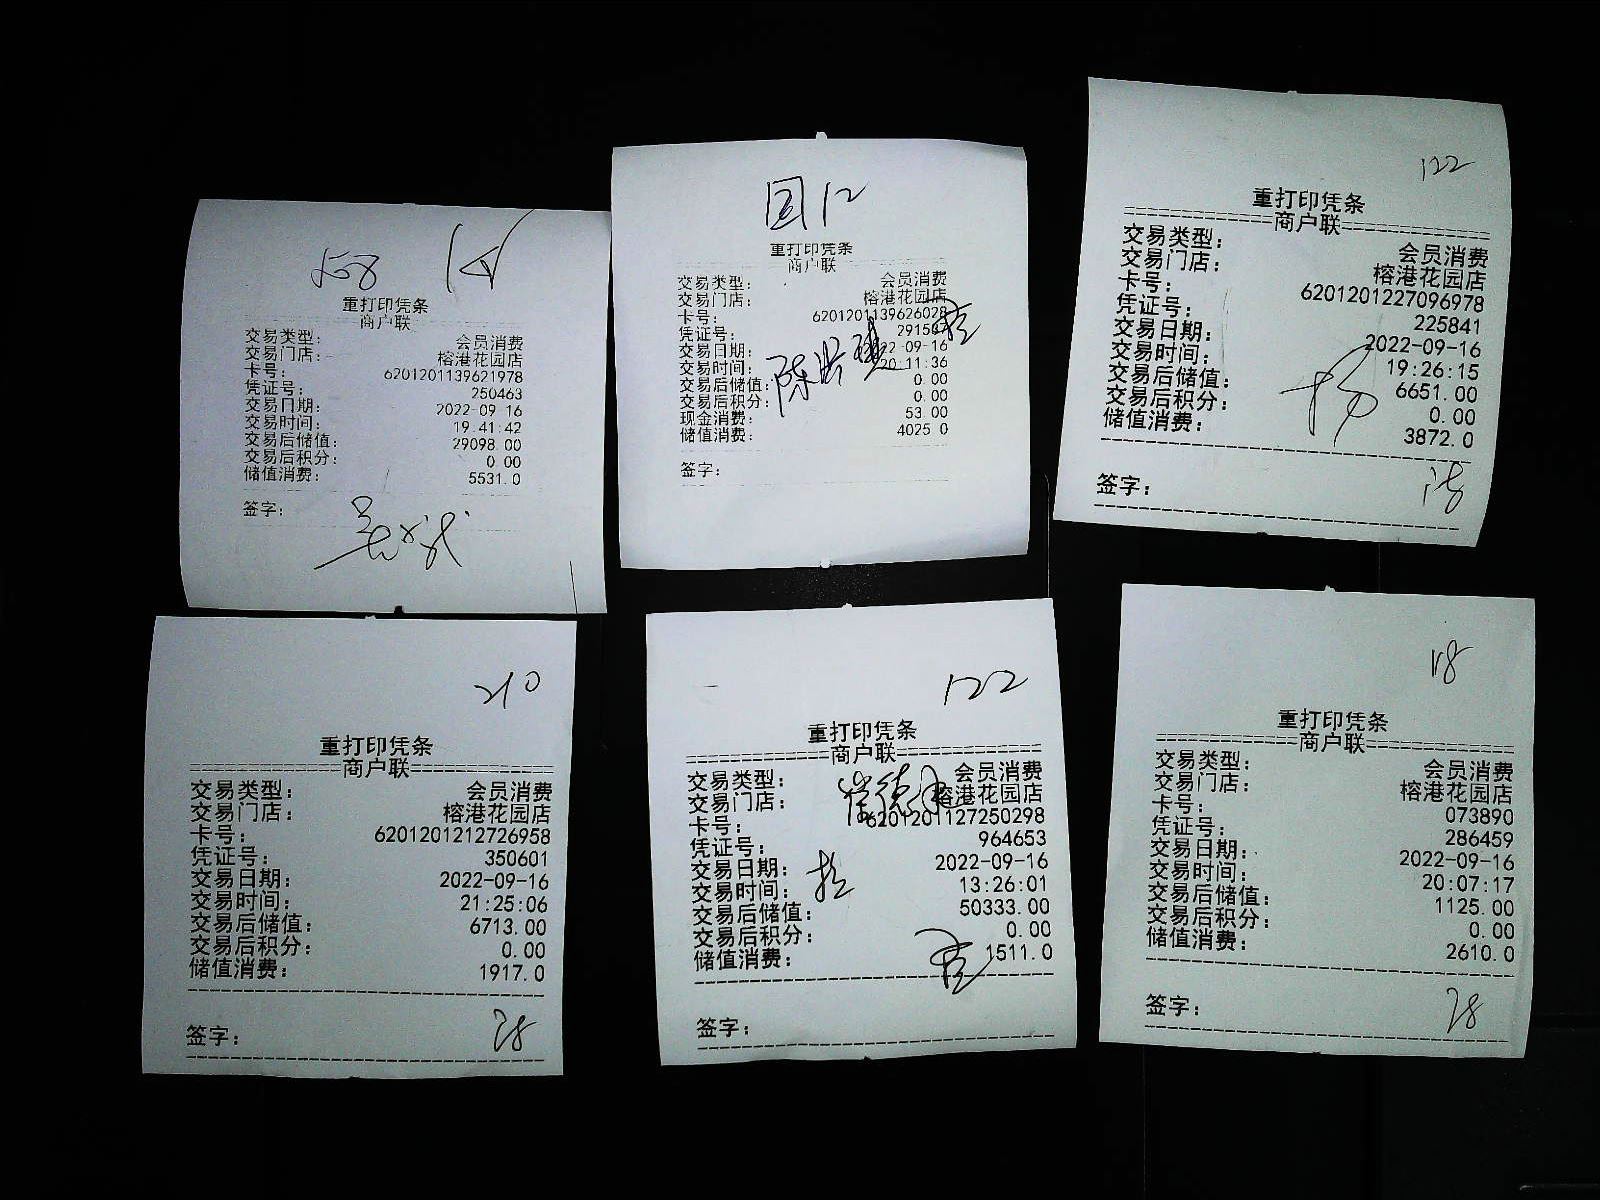 158
重打印凭条
商户联
交易类型: 会员消费
交易门店: 榕港花园店
卡号: 6201201139621978
凭证号: 250463
交易日期: 2022-09-16
交易时间: 19:41:42
交易后储值: 29098.00
交易后积分: 0.00
储值消费: 5531.0
签字:
国12
重打印凭条
商户联
交易类型: 会员消费
交易门店: 榕港花园店
卡号: 6201201139626028
凭证号:
交易日期: 2022-09-16
交易时间: 20:11:36
交易后储值: 0.00
交易后积分: 0.00
现金消费: 53.00
储值消费: 4025.0
签字:
122
重打印凭条
商户联
交易类型: 会员消费
交易门店: 榕港花园店
卡号: 6201201227096978
凭证号: 225841
交易日期: 2022-09-16
交易时间: 19:26:15
交易后储值: 6651.00
交易后积分: 0.00
储值消费: 3872.0
签字:
210
重打印凭条
商户联
交易类型: 会员消费
交易门店: 榕港花园店
卡号: 6201201212726958
凭证号: 350601
交易日期: 2022-09-16
交易时间: 21:25:06
交易后储值: 6713.00
交易后积分: 0.00
储值消费: 1917.0
签字:
122
重打印凭条
商户联
交易类型: 会员消费
交易门店: 榕港花园店
卡号: 6201201127250298
凭证号: 964653
交易日期: 2022-09-16
交易时间: 13:26:01
交易后储值: 50333.00
交易后积分: 0.00
储值消费: 1511.0
签字:
118
重打印凭条
商户联
交易类型: 会员消费
交易门店: 榕港花园店
卡号: 073890
凭证号: 286459
交易日期: 2022-09-16
交易时间: 20:07:17
交易后储值: 1125.00
交易后积分: 0.00
储值消费: 2610.0
签字: